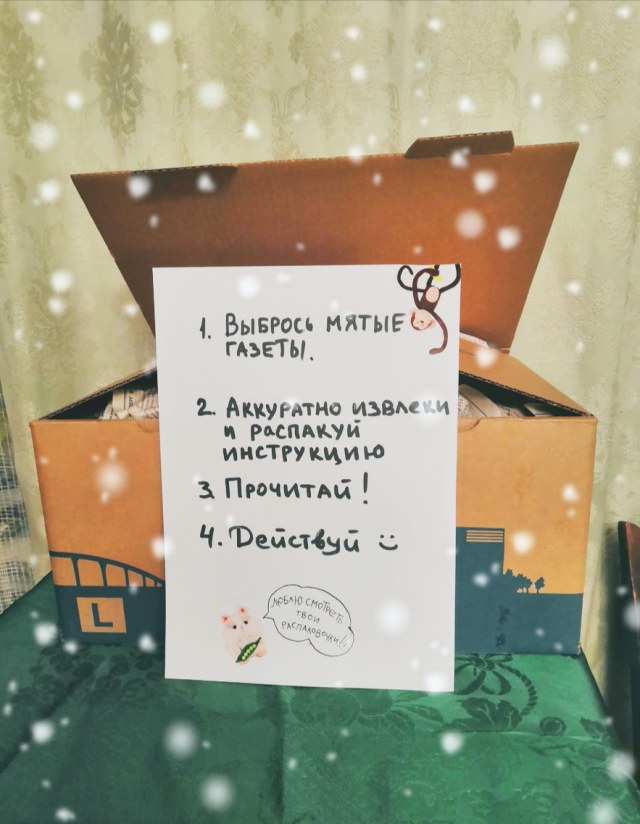 1. Выбрось мятые
газеты.
2. Аккуратно извлеки
и распакуй
инструкцию
3. Прочитай!
4. Действуй :)
Люблю смотреть
твои
распаковочки!
L